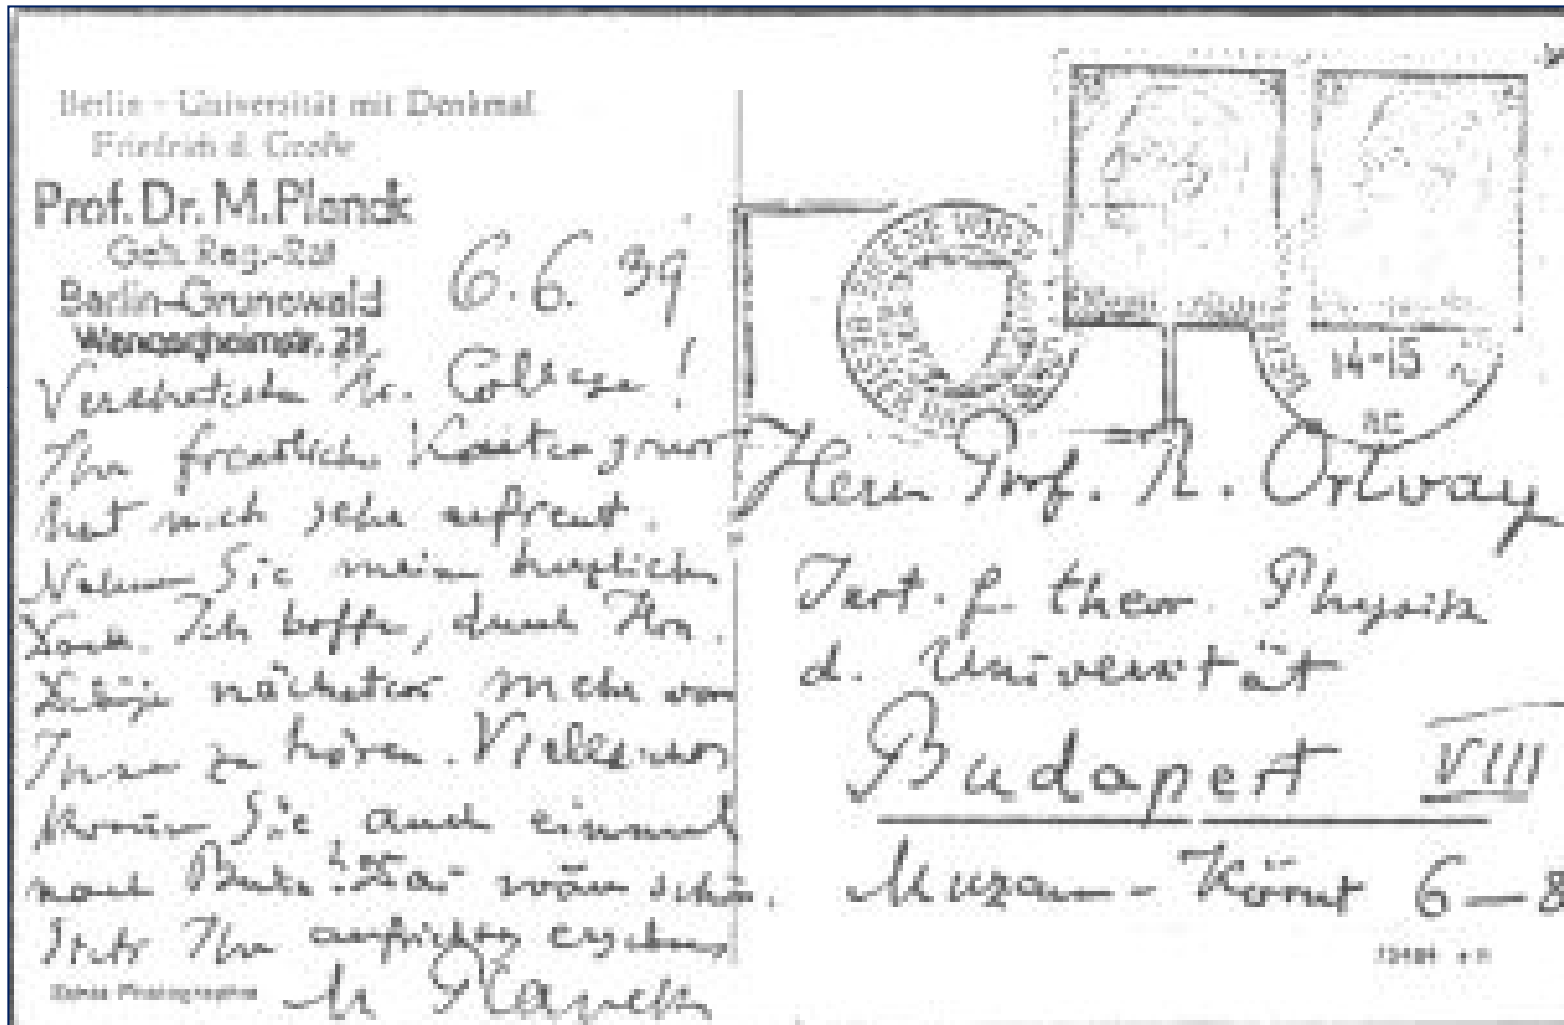 Berlin - Universität mit Denkmal
Friedrich d. Große
Prof. Dr. M. Planck
Geh. Reg.-Rat
Berlin-Grunewald
Wangenheimstr. 21
6.6.39
Verehrtester Hr. College!
Ihr freundlicher Kartengruss
hat mich sehr erfreut.
Nehmen Sie meinen herzlichen
Dank. Ich hoffe, durch Hrn.
nächstens mehr von
Ihnen zu hören. Vielleicht
kommen Sie auch einmal
nach Berlin. Das wäre schön.
Stets Ihr aufrichtig ergebener
M Planck
Echte Photographie
14-15
Herrn Prof. R. Ortvay
Inst. f. theor. Physik
d. Universität
Budapest VIII
Muzeum-Körut 6-8